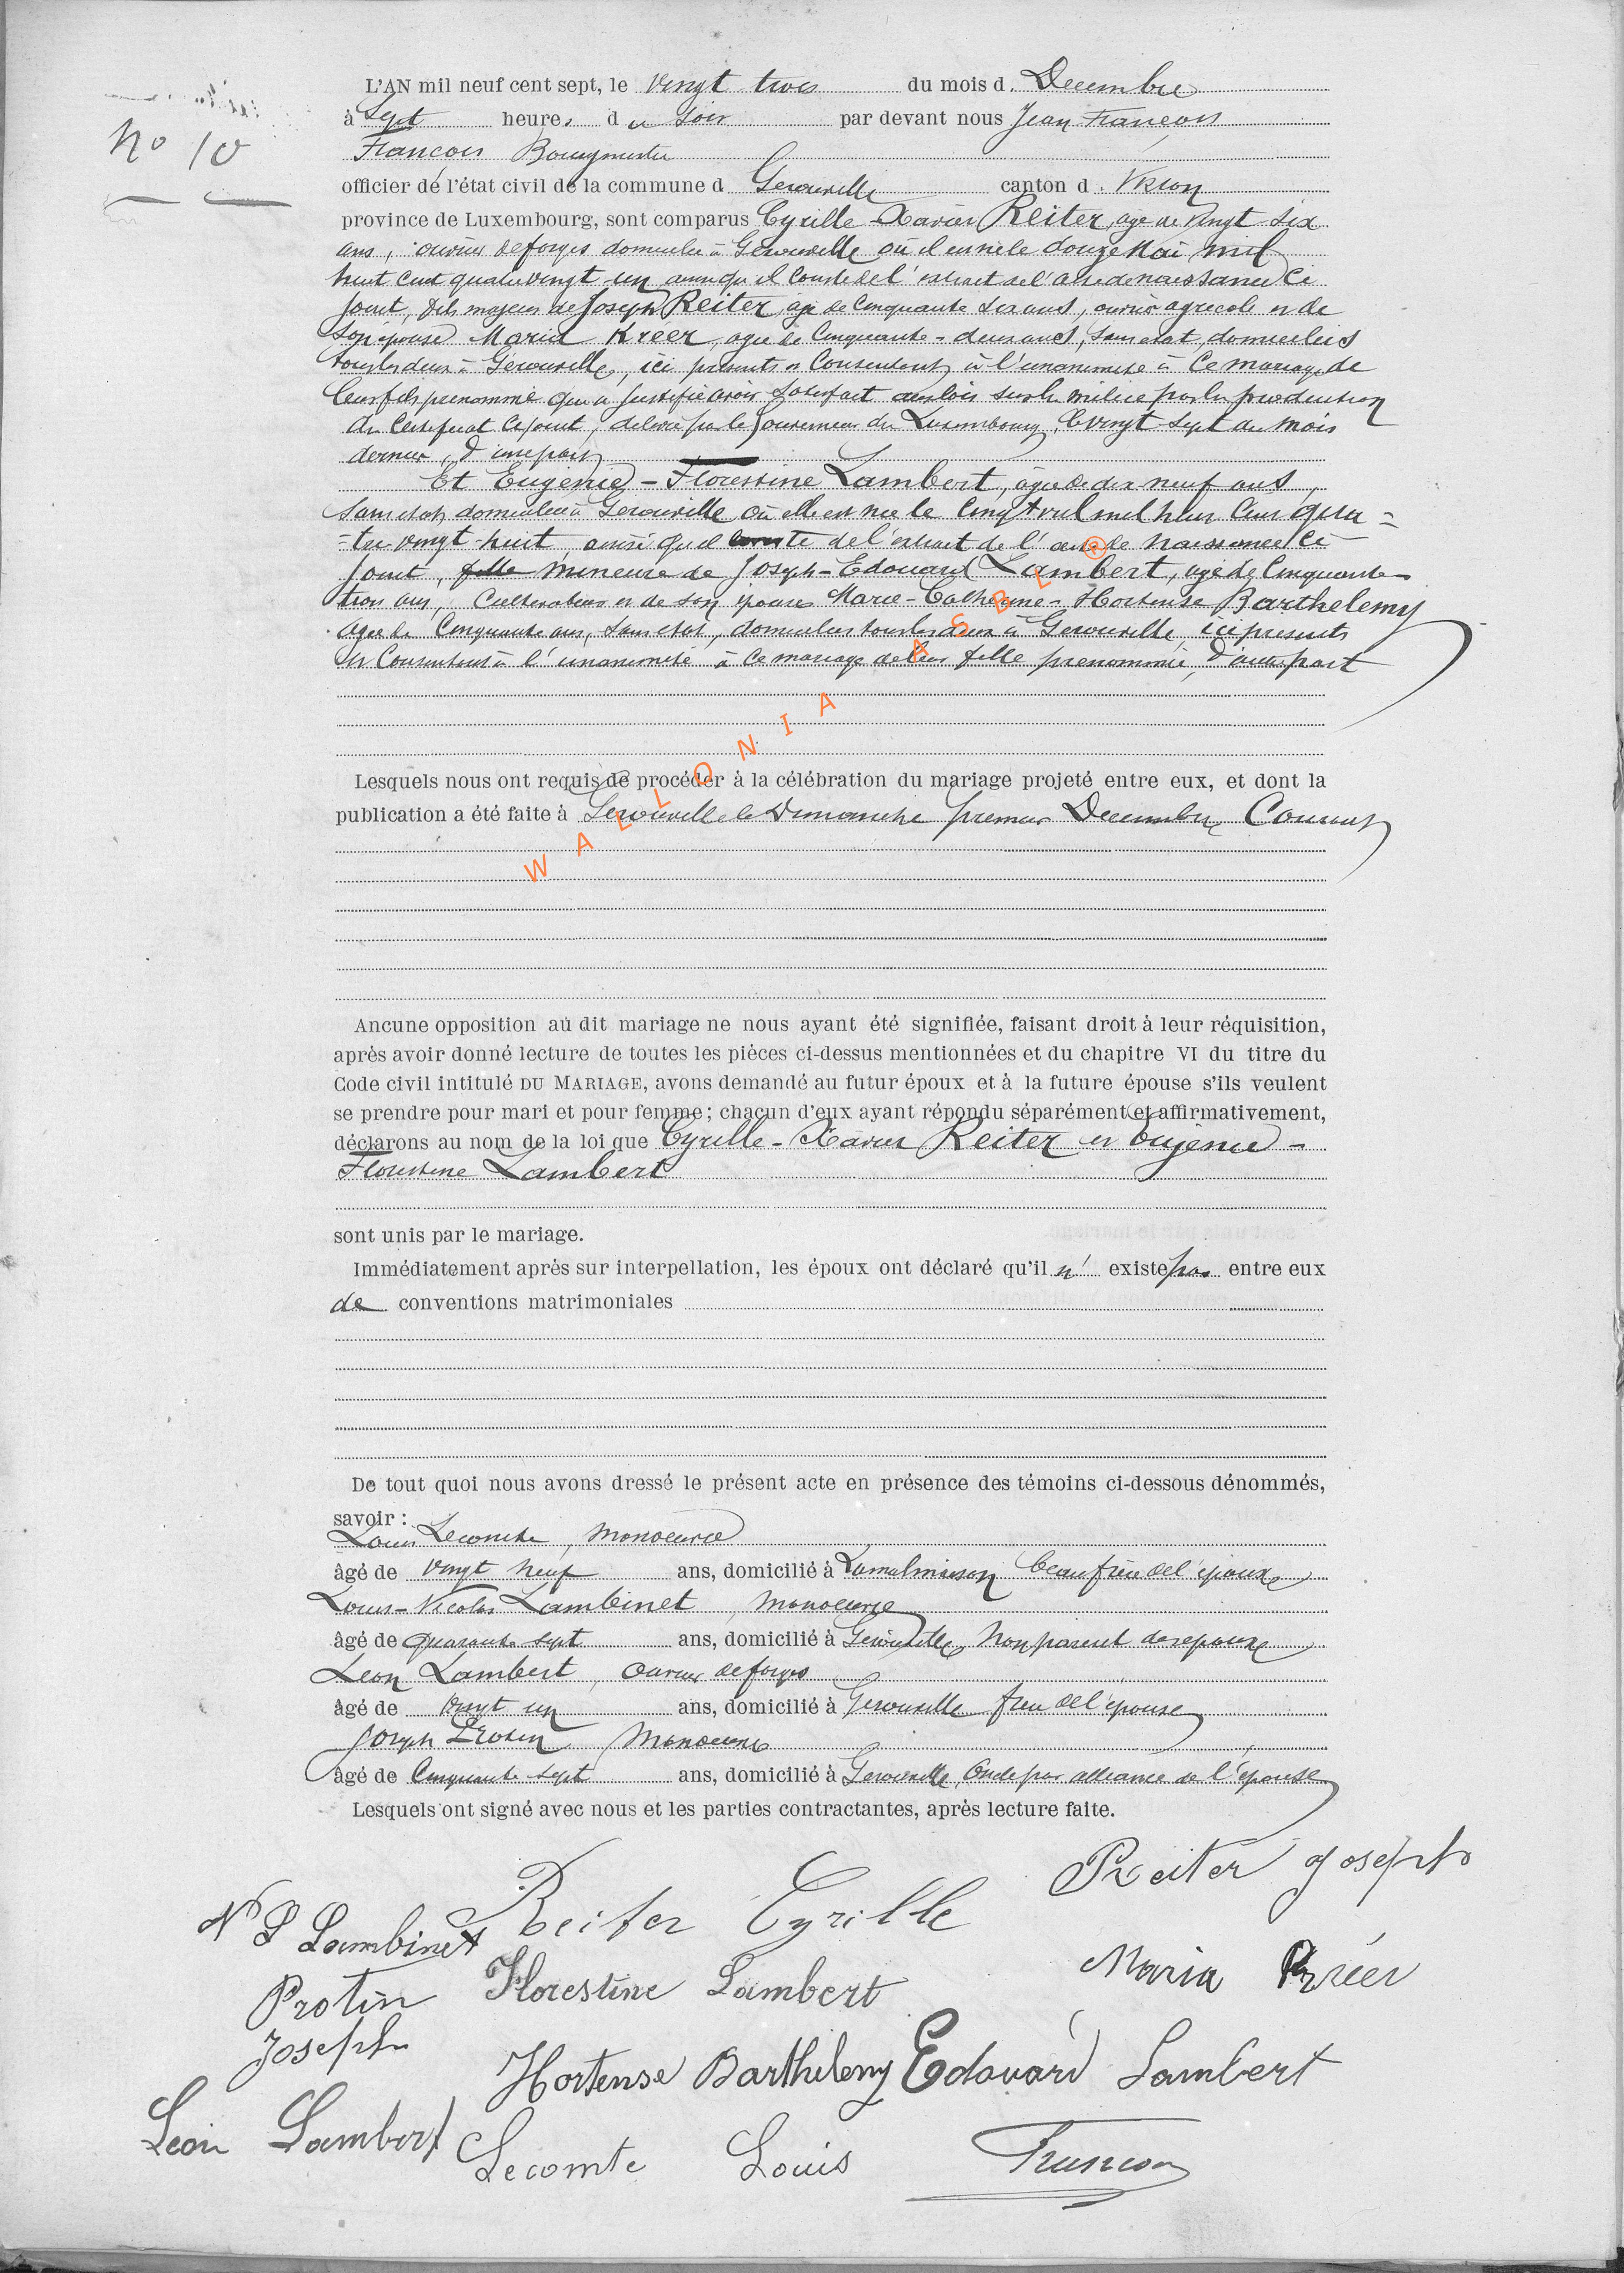 No 10
L'AN mil neuf cent sept, le vingt trois du mois d. Decembre
à Sept heures du Soir par devant nous Jean François
François Bourgmestre
officier de l'état civil de la commune d Gerouville canton d. Virton
province de Luxembourg, sont comparus Cyrille-Xavier Reiter, agé de vingt six
ans, ouvrier de forges domicilié à Gerouville où il est né le douze Mai mil
huit cent quatre vingt un ainsi qu'il conste de l'extrait de l'acte de naissance ci
joint, fils majeur de Joseph Reiter, agé de cinquante six ans, ouvrier agricole et de
son épouse Maria Kréer, agée de cinquante-deux ans, sans état, domiciliés
tous les deux à Gérouville, ici présents et consentent à l'unanimité à ce mariage de
leur fils prénommé qui a justifié avoir satisfait aux lois sur la milice par la production
du certificat ci joint, délivré par le Gouverneur du Luxembourg, le vingt-sept du mois
dernier, d'une part
Et Eugénie-Florestine Lambert, âgée de dix neuf ans,
sans état domiciliée à Gerouville où elle est née le cinq Avril mil huit cent qua=
=tre vingt-huit, ainsi qu'il conste de l'extrait de l'acte de naissance ci
joint, fille mineure de Joseph-Edouard Lambert, agé de cinquante-
trois ans, cultivateur et de son épouse Marie-Catherine-Hortense Barthelemy
agée de cinquante ans, sans état, domiciliés tous les deux à Gerouville, ici présents
et consentent à l'unanimité à ce mariage de leur fille prénommée, d'autre part
WALLONIA ASBL ®
Lesquels nous ont requis de procéder à la célébration du mariage projeté entre eux, et dont la
publication a été faite à Gerouville le Dimanche premier Decembre Courant
Aucune opposition au dit mariage ne nous ayant été signifiée, faisant droit à leur réquisition,
après avoir donné lecture de toutes les pièces ci-dessus mentionnées et du chapitre VI du titre du
Code civil intitulé DU MARIAGE, avons demandé au futur époux et à la future épouse s'ils veulent
se prendre pour mari et pour femme; chacun d'eux ayant répondu séparément et affirmativement,
déclarons au nom de la loi que Cyrille-Xavier Reiter et Eugénie-
Florestine Lambert
sont unis par le mariage.
Immédiatement après sur interpellation, les époux ont déclaré qu'il n' existe pas entre eux
de conventions matrimoniales
De tout quoi nous avons dressé le présent acte en présence des témoins ci-dessous dénommés,
savoir :
Louis Lecomte, manoeuvre
âgé de vingt neuf ans, domicilié à Lamalmaison beau frère de l'époux
Louis-Nicolas Lambinet, manoeuvre
âgé de quarante sept ans, domicilié à Gerouville non parent des époux
Léon Lambert, ouvrier de forges
âgé de vingt un ans, domicilié à Gerouville frère de l'épouse
Joseph Protin, manoeuvre
âgé de cinquante sept ans, domicilié à Gerouville, oncle par alliance de l'épouse
Lesquels ont signé avec nous et les parties contractantes, après lecture faite.
Reiter Joseph
N L Lambinet Reiter Cyrille
Protin Florestine Lambert Maria Kréer
Joseph
Hortense Barthelemy Edouard Lambert
Léon Lambert Lecomte Louis François